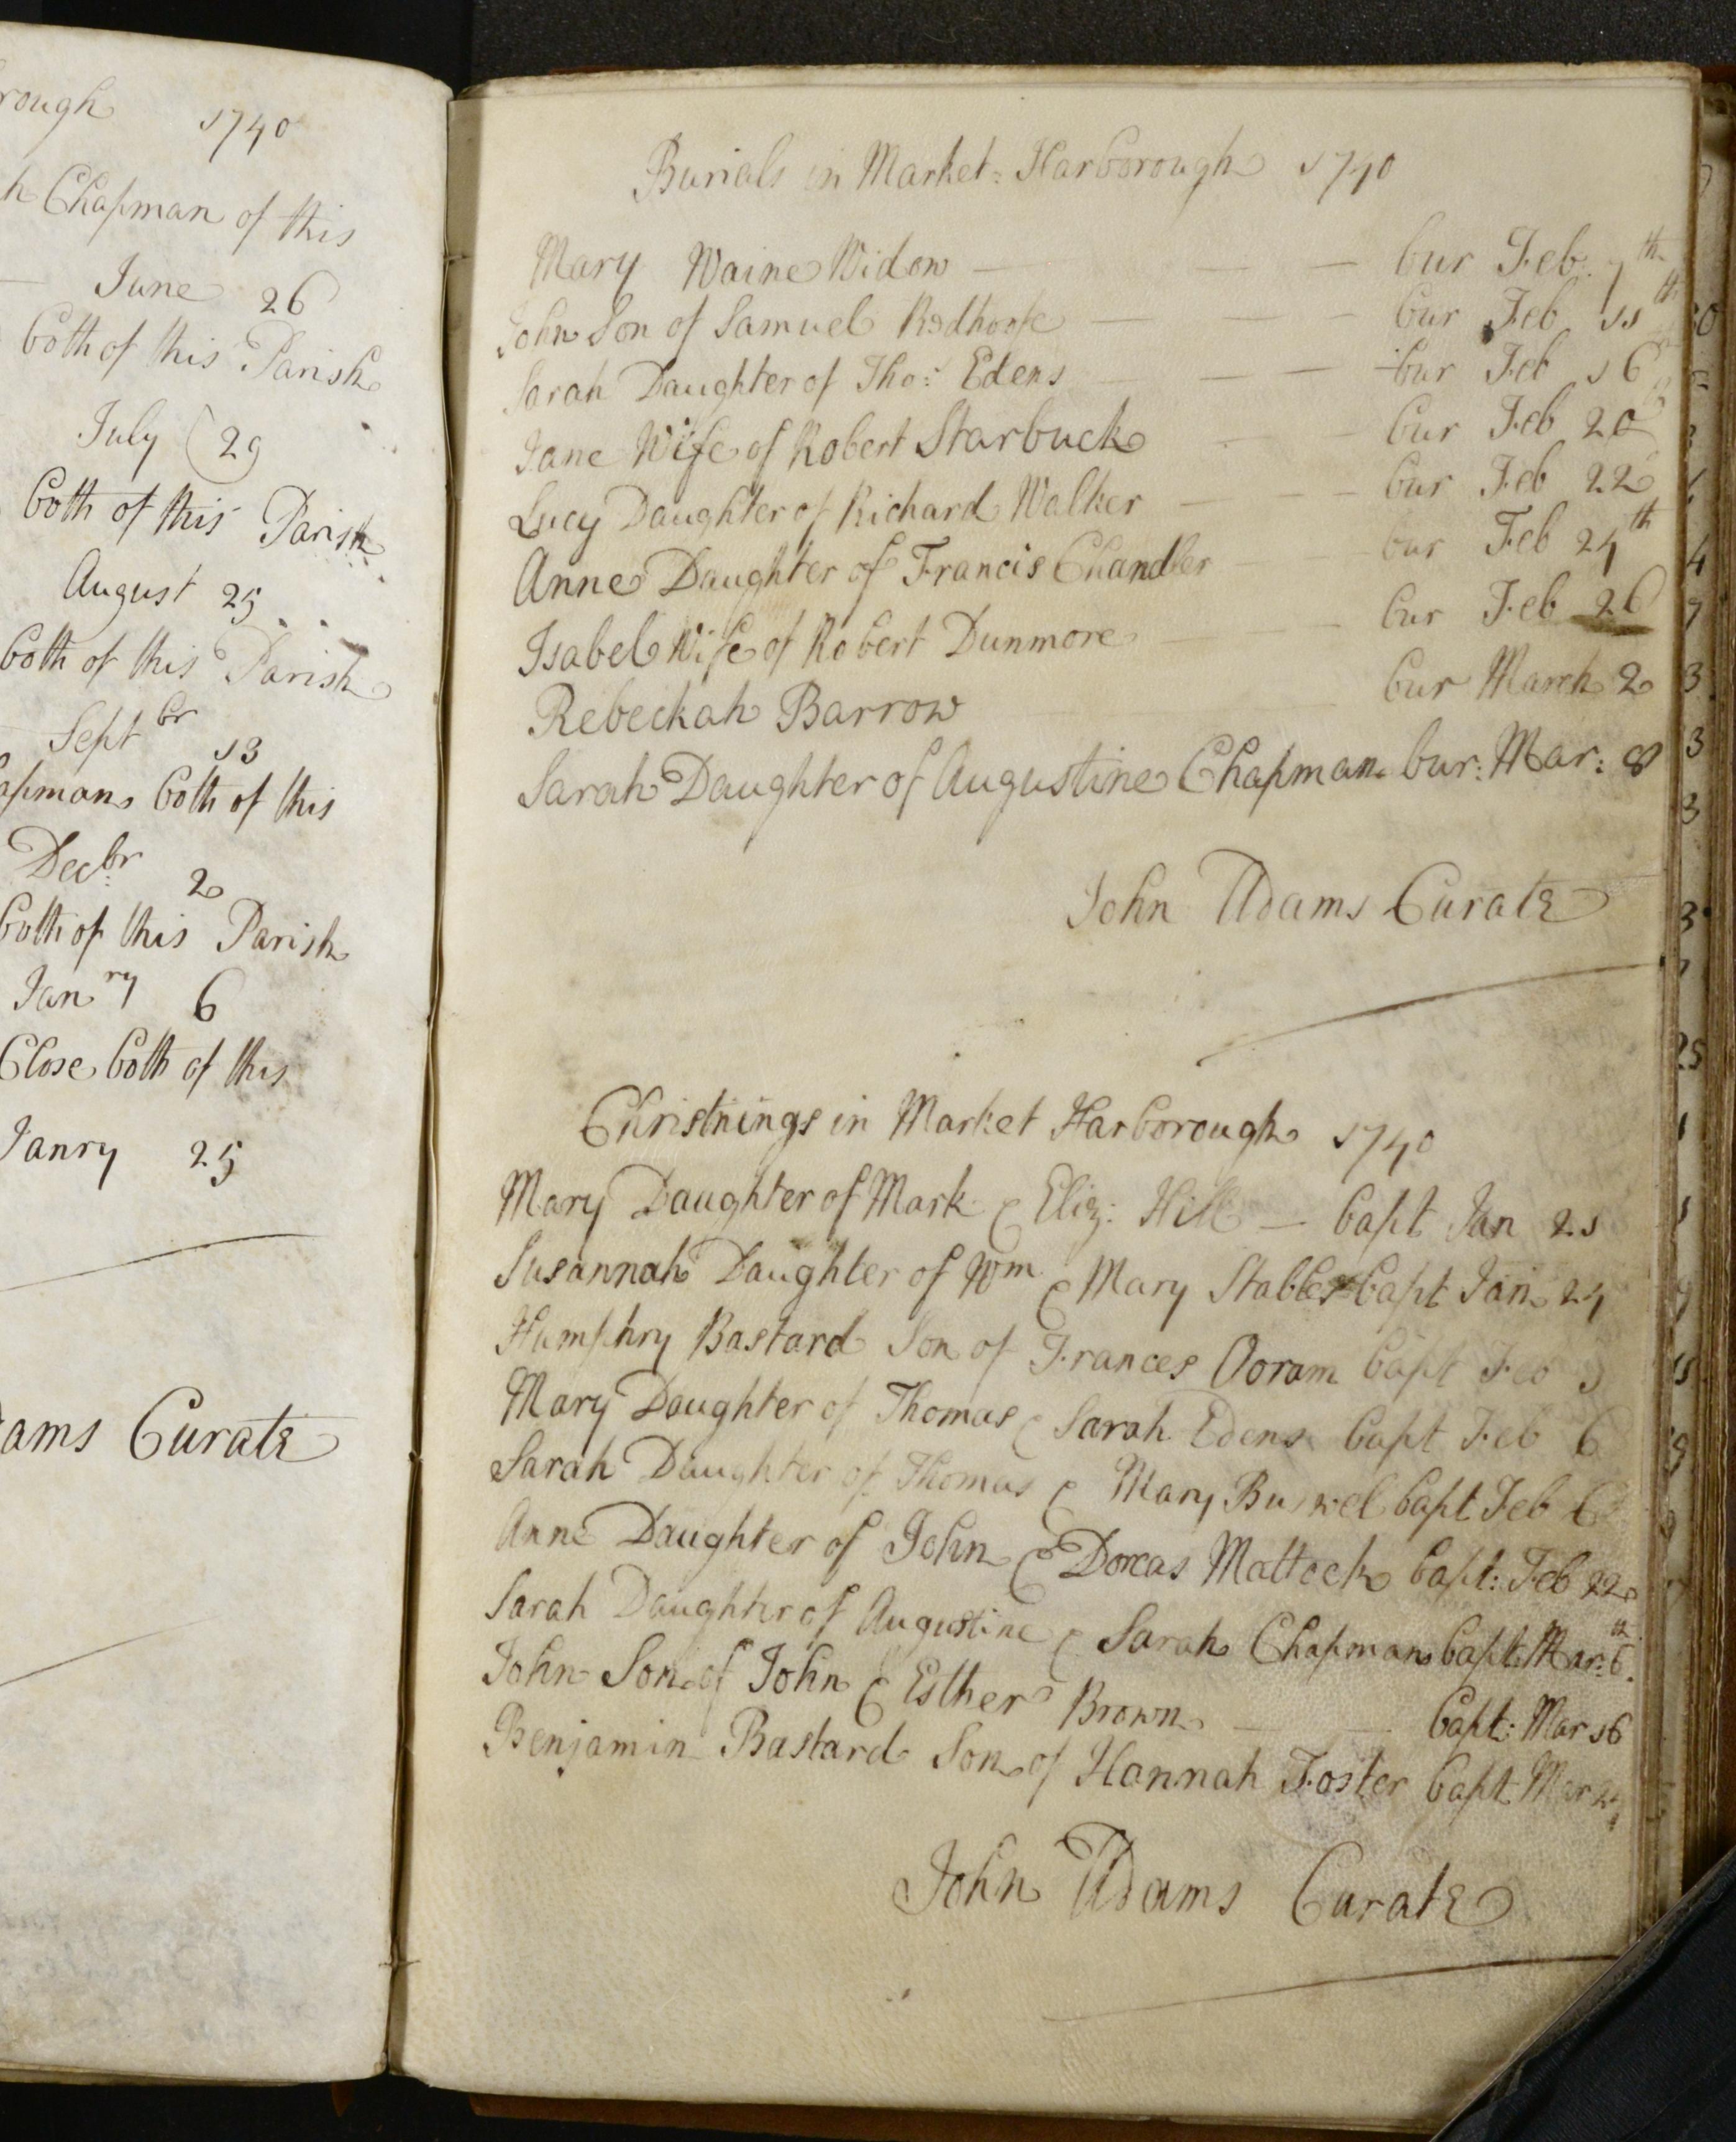 rough 1740
h Chapman of this
June 26
both of this Parish
July 29
both of this Parish
August 25
both of this Parish
Septbr 13
apman both of this
Decbr 2
both of this Parish
Janry 6
Close both of this
Janry 25
ams Curate
Burials in Market-Harborough 1740
Mary Waine Widow — — — bur Feb. 7th
John Son of Samuel — — — bur Feb 11th
Sarah Daughter of Tho: Edens — — — bur Feb 16
Jane Wife of Robert Starbuck — — bur Feb 20
Lucy Daughter of Richard Walker — — — bur Feb 22
Anne Daughter of Francis Chandler — — bur Feb 24th
Isabel Wife of Robert Dunmore — — bur Feb 26
Rebeckah Barrow bur March 2
Sarah Daughter of Augustine Chapman bur: Mar: 8
John Adams Curate
Christnings in Market Harborough 1740
Mary Daughter of Mark & Eliz: Hill — bapt Jan 21
Susannah Daughter of Wm & Mary Stables bapt Jan 24
Humphry Bastard Son of Frances Ooram bapt Feb
Mary Daughter of Thomas & Sarah Edens bapt Feb 6
Sarah Daughter of Thomas & Mary Buswel bapt Feb 6
Anne Daughter of John & Dorcas Mattock bapt: Feb 22
Sarah Daughter of Augustine & Sarah Chapman bapt: Mar: 6th
John Son of John & Esther Brown — — bapt: Mar 16
Benjamin Bastard Son of Hannah Foster bapt Mar 24
John Adams Curate